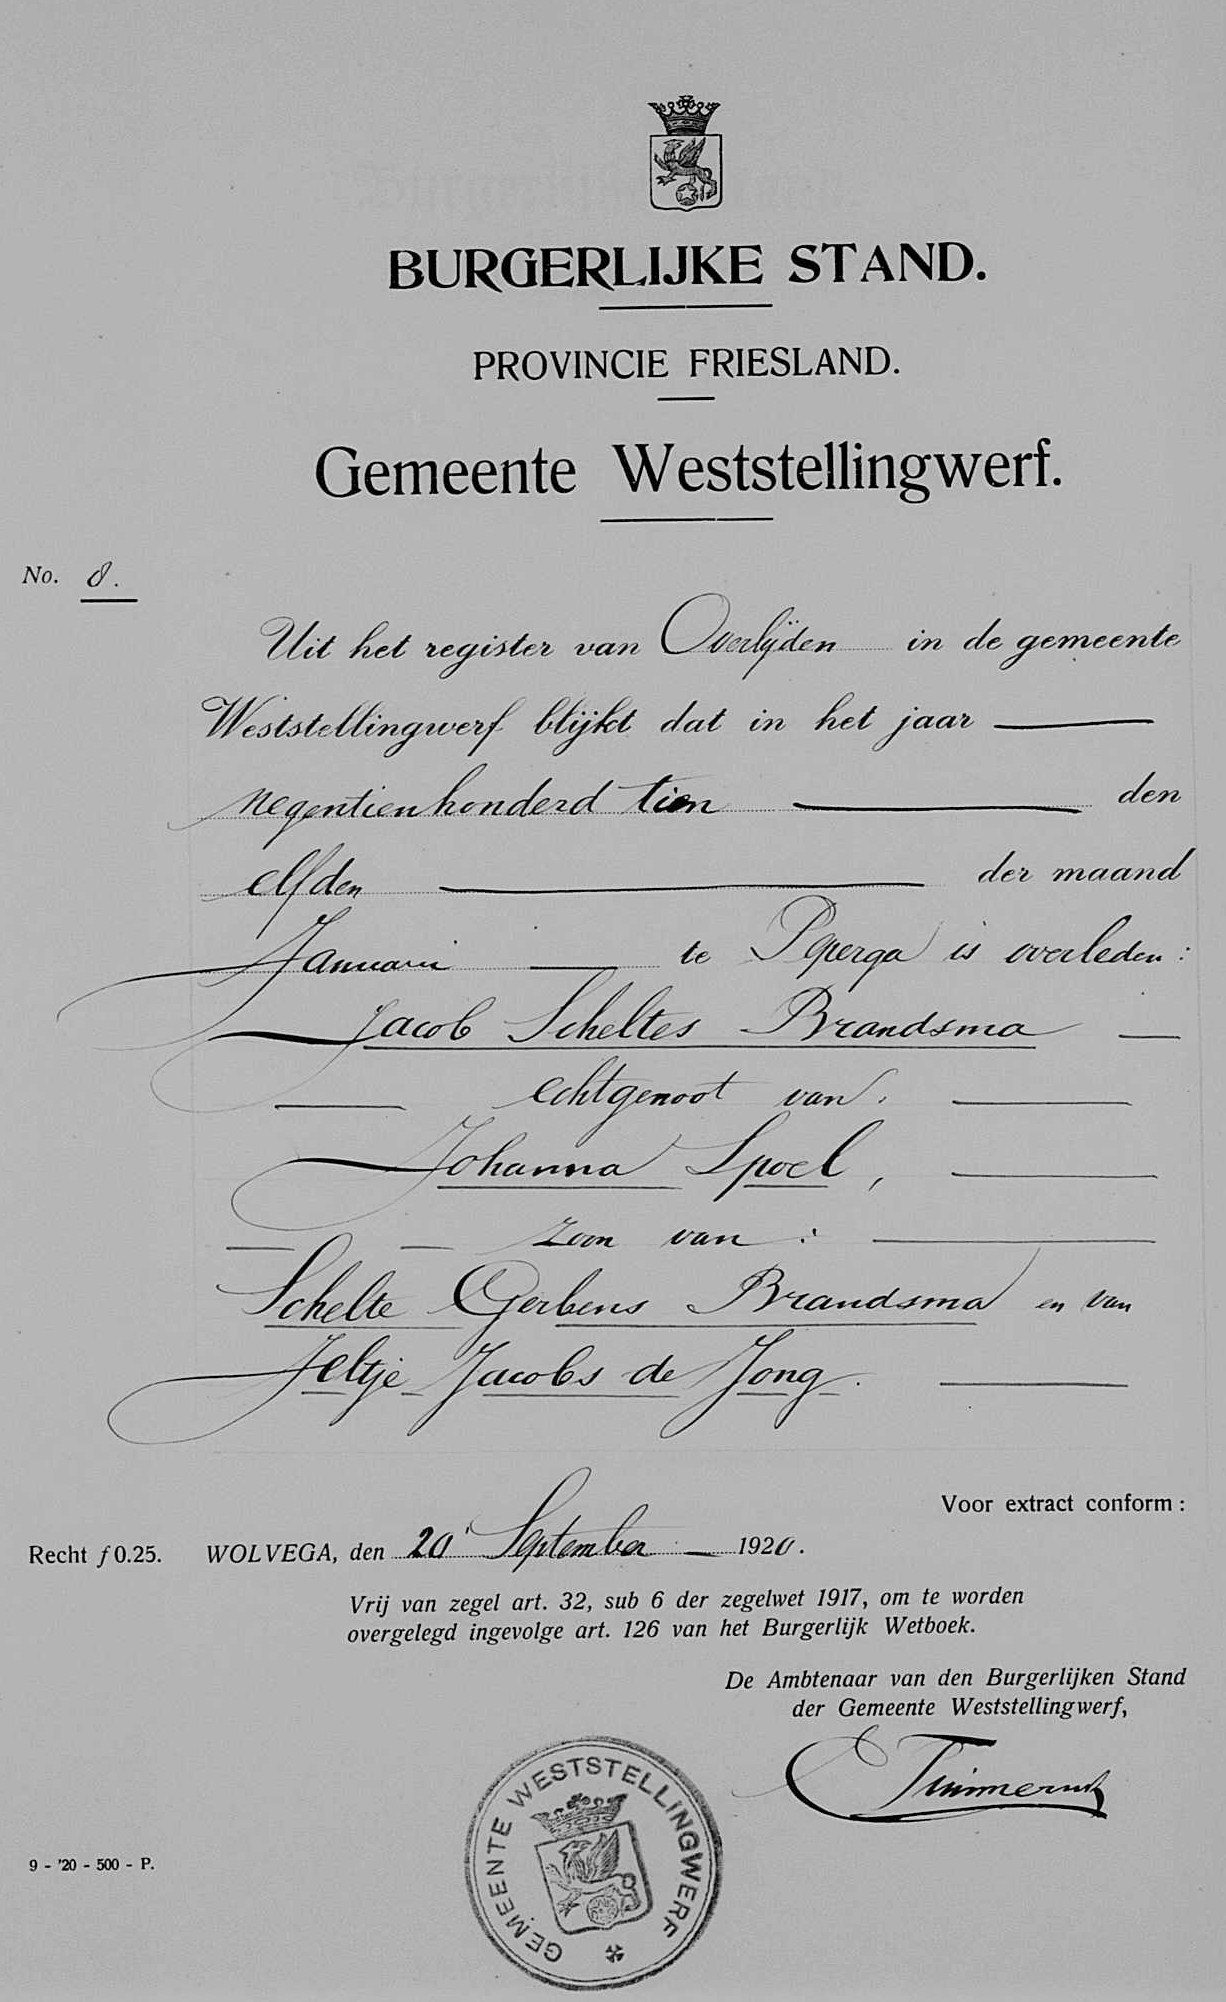 BURGERLIJKE STAND.
PROVINCIE FRIESLAND.
Gemeente Weststellingwerf.
No. 8.
Uit het register van Overlijden in de gemeente
Weststellingwerf blijkt dat in het jaar
negentienhonderd tien den
elfden der maand
Januari te Peperga is overleden:
Jacob Scheltes Brandsma
echtgenoot van
Johanna Spoel,
zoon van:
Schelte Gerbens Brandsma en van
Jeltje Jacobs de Jong.
Voor extract conform:
Recht ƒ 0.25. WOLVEGA, den 20 September 1920.
Vrij van zegel art. 32, sub 6 der zegelwet 1917, om te worden
overgelegd ingevolge art. 126 van het Burgerlijk Wetboek.
De Ambtenaar van den Burgerlijken Stand
der Gemeente Weststellingwerf,
GEMEENTE WESTSTELLINGWERF
9 - '20 - 500 - P.